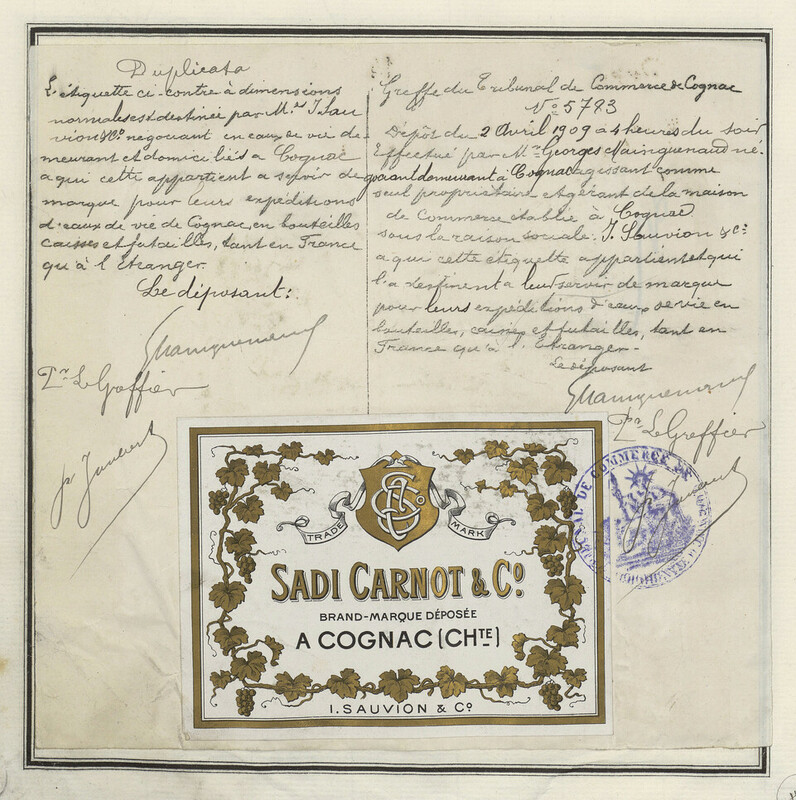 Duplicata
L'étiquette ci-contre à dimensions
normales est destinée par Mrs I. Sau
vion & Co négociant en eaux de vie de
meurant et domiciliés à Cognac
a qui cette appartient a servir de
marque pour leurs expéditions
d'eaux de vie de Cognac, en bouteilles
caisses et futailles, tant en France
qu'à l'Etranger.
Le déposant:
Pr Le Greffier
Greffe du Tribunal de Commerce de Cognac
No 5783
Dépôt du 2 Avril 1909 a 4 heures du soir
Effectué par Mr Georges Mainguenaud né-
gociant demeurant à Cognac agissant comme
seul propriétaire et gérant de la maison
de Commerce établie à Cognac
sous la raison sociale. I. Sauvion & Cie
a qui cette étiquette appartient et qui
l'a destinent a leur servir de marque
pour leurs expéditions d'eaux de vie en
bouteilles, caisses et futailles, tant en
France qu'à l'Etranger-
Le déposant
Pr Le Greffier
TRADE MARK
SADI CARNOT & Co.
BRAND-MARQUE DÉPOSÉE
A COGNAC (CHTE)
I. SAUVION & Co
DE COMMERCE DE